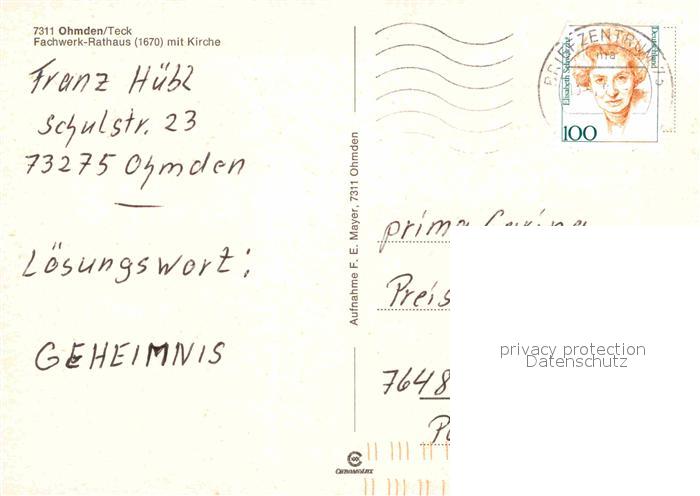 7311 Ohmden/Teck
Fachwerk-Rathaus (1670) mit Kirche
Franz Hübl
Schulstr. 23
73275 Ohmden
Lösungswort:
GEHEIMNIS
Aufnahme F. E. Mayer, 7311 Ohmden
CHROMOLUX
BRIEFZENTRUM
Elisabeth Schwarzkopf
Deutschland
100
prima Carina
Preis
7648
privacy protection
Datenschutz